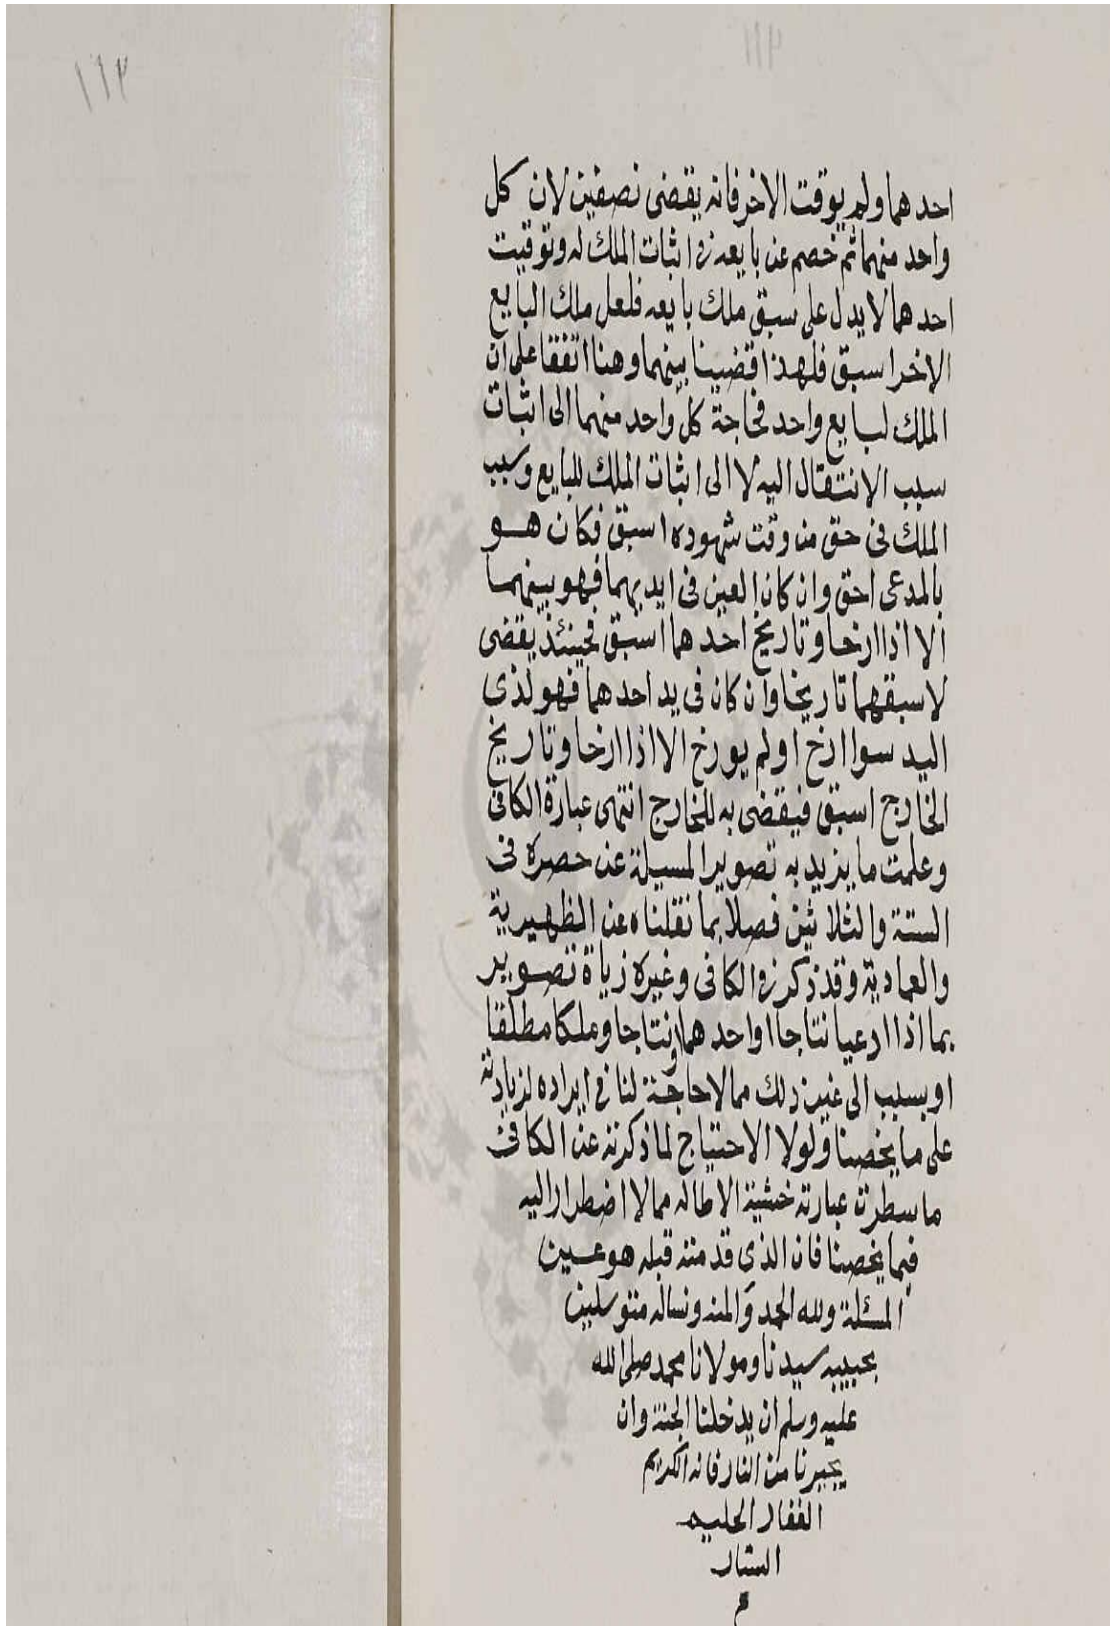 ١١٢
احدهما ولم يوقت الاخر فانه يقضى نصفين لان كل
واحد منهما ثم خصم عن بايعه في اثبات الملك له وتوقيت
احدهما لا يدل على سبق ملك بايعه فلعل ملك البايع
الاخر اسبق فلهذا قضينا بينهما وهنا اتفقا على ان
الملك لبايع واحد فحاجة كل واحد منهما الى اثبات
سبب الانتقال اليه لا الى اثبات الملك للبايع وسبب
الملك في حق من وقت شهوده اسبق فكان هو
بالمدعى احق وان كان العين في ايديهما فهو بينهما
الا اذا ارخا وتاريخ احدهما اسبق فحينئذ يقضى
لاسبقهما تاريخا وان كان في يد احدهما فهو لذى
اليد سوا ارخ او لم يورخ الا اذا ارخا وتاريخ
الخارج اسبق فيقضى به للخارج انتهى عبارة الكافى
وعلمت ما يزيد به تصوير المسيلة عن حصره فى
الستة والثلاثين فصلا بما نقلناه عن الظهيرية
والعمادية وقد ذكر في الكافى وغيره زياة تصوير
بما اذا ادعيا نتاجا او احدهما نتاجا وملكا مطلقا
او بسبب الى غير ذلك مما لا حاجة لنا في ايراده لزيادته
على ما يخصنا ولولا الاحتياج لما ذكرته عن الكافى
ما سطرت عبارته خشية الاطالة مما لا اضطرار اليه
فيما يخصنا فان الذي قدمته قبله هو عين
المسئلة ولله الحمد والمنه ونساله متوسلين
بحبيبه سيدنا ومولانا محمد صلى الله
عليه وسلم ان يدخلنا الجنة وان
يجيرنا من النار فانه الكريم
الغفار الحليم
الستار
م